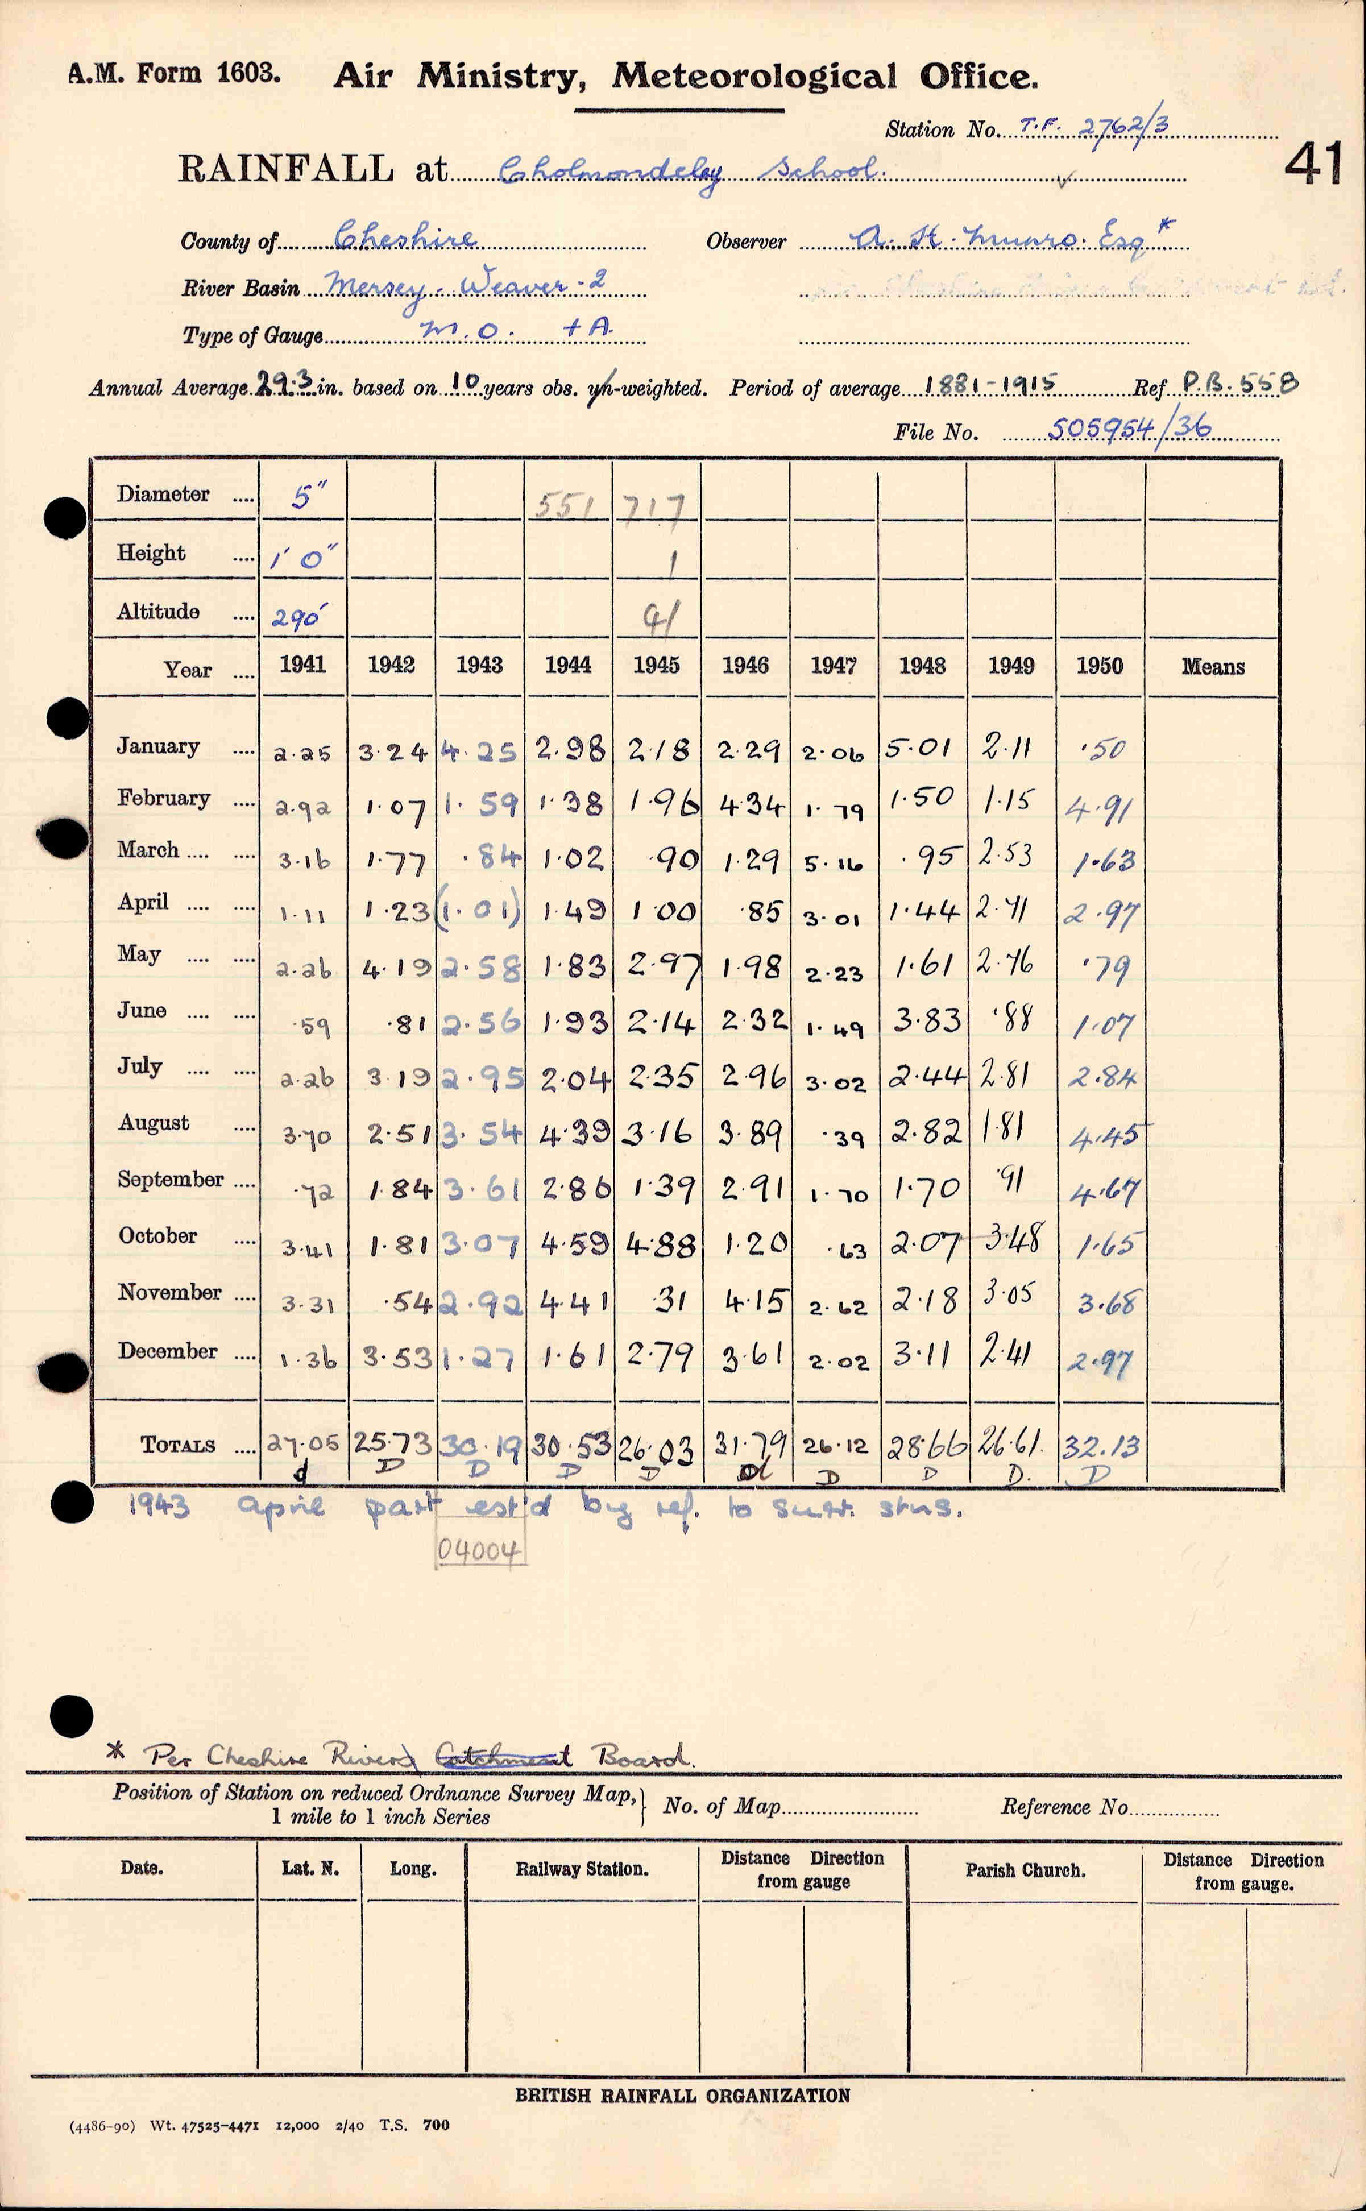 A.M. Form 1603. Air Ministry, Meteorological Office.
Station No. T.F. 2762/3
41
RAINFALL at Cholmondeley School.
County of Cheshire Observer A. H. Munro. Esq *
River Basin Mersey - Weaver - 2
Type of Gauge M.O. + A
Annual Average 29.3 in. based on 10 years obs. un-weighted. Period of average 1881-1915 Ref P.B. 558
File No. 505954/36
Diameter .... 5" 551 717
Height .... 1' 0" 1
Altitude .... 290' 41
Year .... 1941 1942 1943 1944 1945 1946 1947 1948 1949 1950 Means
January .... 2.25 3.24 4.25 2.98 2.18 2.29 2.06 5.01 2.11 .50
February .... 2.92 1.07 1.59 1.38 1.96 4.34 1.79 1.50 1.15 4.91
March .... .... 3.16 1.77 .84 1.02 .90 1.29 5.16 .95 2.53 1.63
April .... .... 1.11 1.23 (1.01) 1.49 1.00 .85 3.01 1.44 2.71 2.97
May .... .... 2.26 4.19 2.58 1.83 2.97 1.98 2.23 1.61 2.76 .79
June .... .... .59 .81 2.56 1.93 2.14 2.32 1.49 3.83 .88 1.07
July .... .... 2.26 3.19 2.95 2.04 2.35 2.96 3.02 2.44 2.81 2.84
August .... 3.70 2.51 3.54 4.39 3.16 3.89 .39 2.82 1.81 4.45
September .... .72 1.84 3.61 2.86 1.39 2.91 1.70 1.70 .91 4.67
October .... 3.41 1.81 3.07 4.59 4.88 1.20 .63 2.07 3.48 1.65
November .... 3.31 .54 2.92 4.41 .31 4.15 2.62 2.18 3.05 3.68
December .... 1.36 3.53 1.27 1.61 2.79 3.61 2.02 3.11 2.41 2.97
TOTALS .... 27.05 25.73 30.19 30.53 26.03 31.79 26.12 28.66 26.61. 32.13
d D D D D d D D D. D
1943 April part est'd by ref. to surr. stns.
04004
* Per Cheshire Rivers Catchment Board.
Position of Station on reduced Ordnance Survey Map, 1 mile to 1 inch Series } No. of Map Reference No.
Date. Lat. N. Long. Railway Station. Distance Direction from gauge Parish Church. Distance Direction from gauge.
BRITISH RAINFALL ORGANIZATION
(4486-90) Wt. 47525-4471 12,000 2/40 T.S. 700